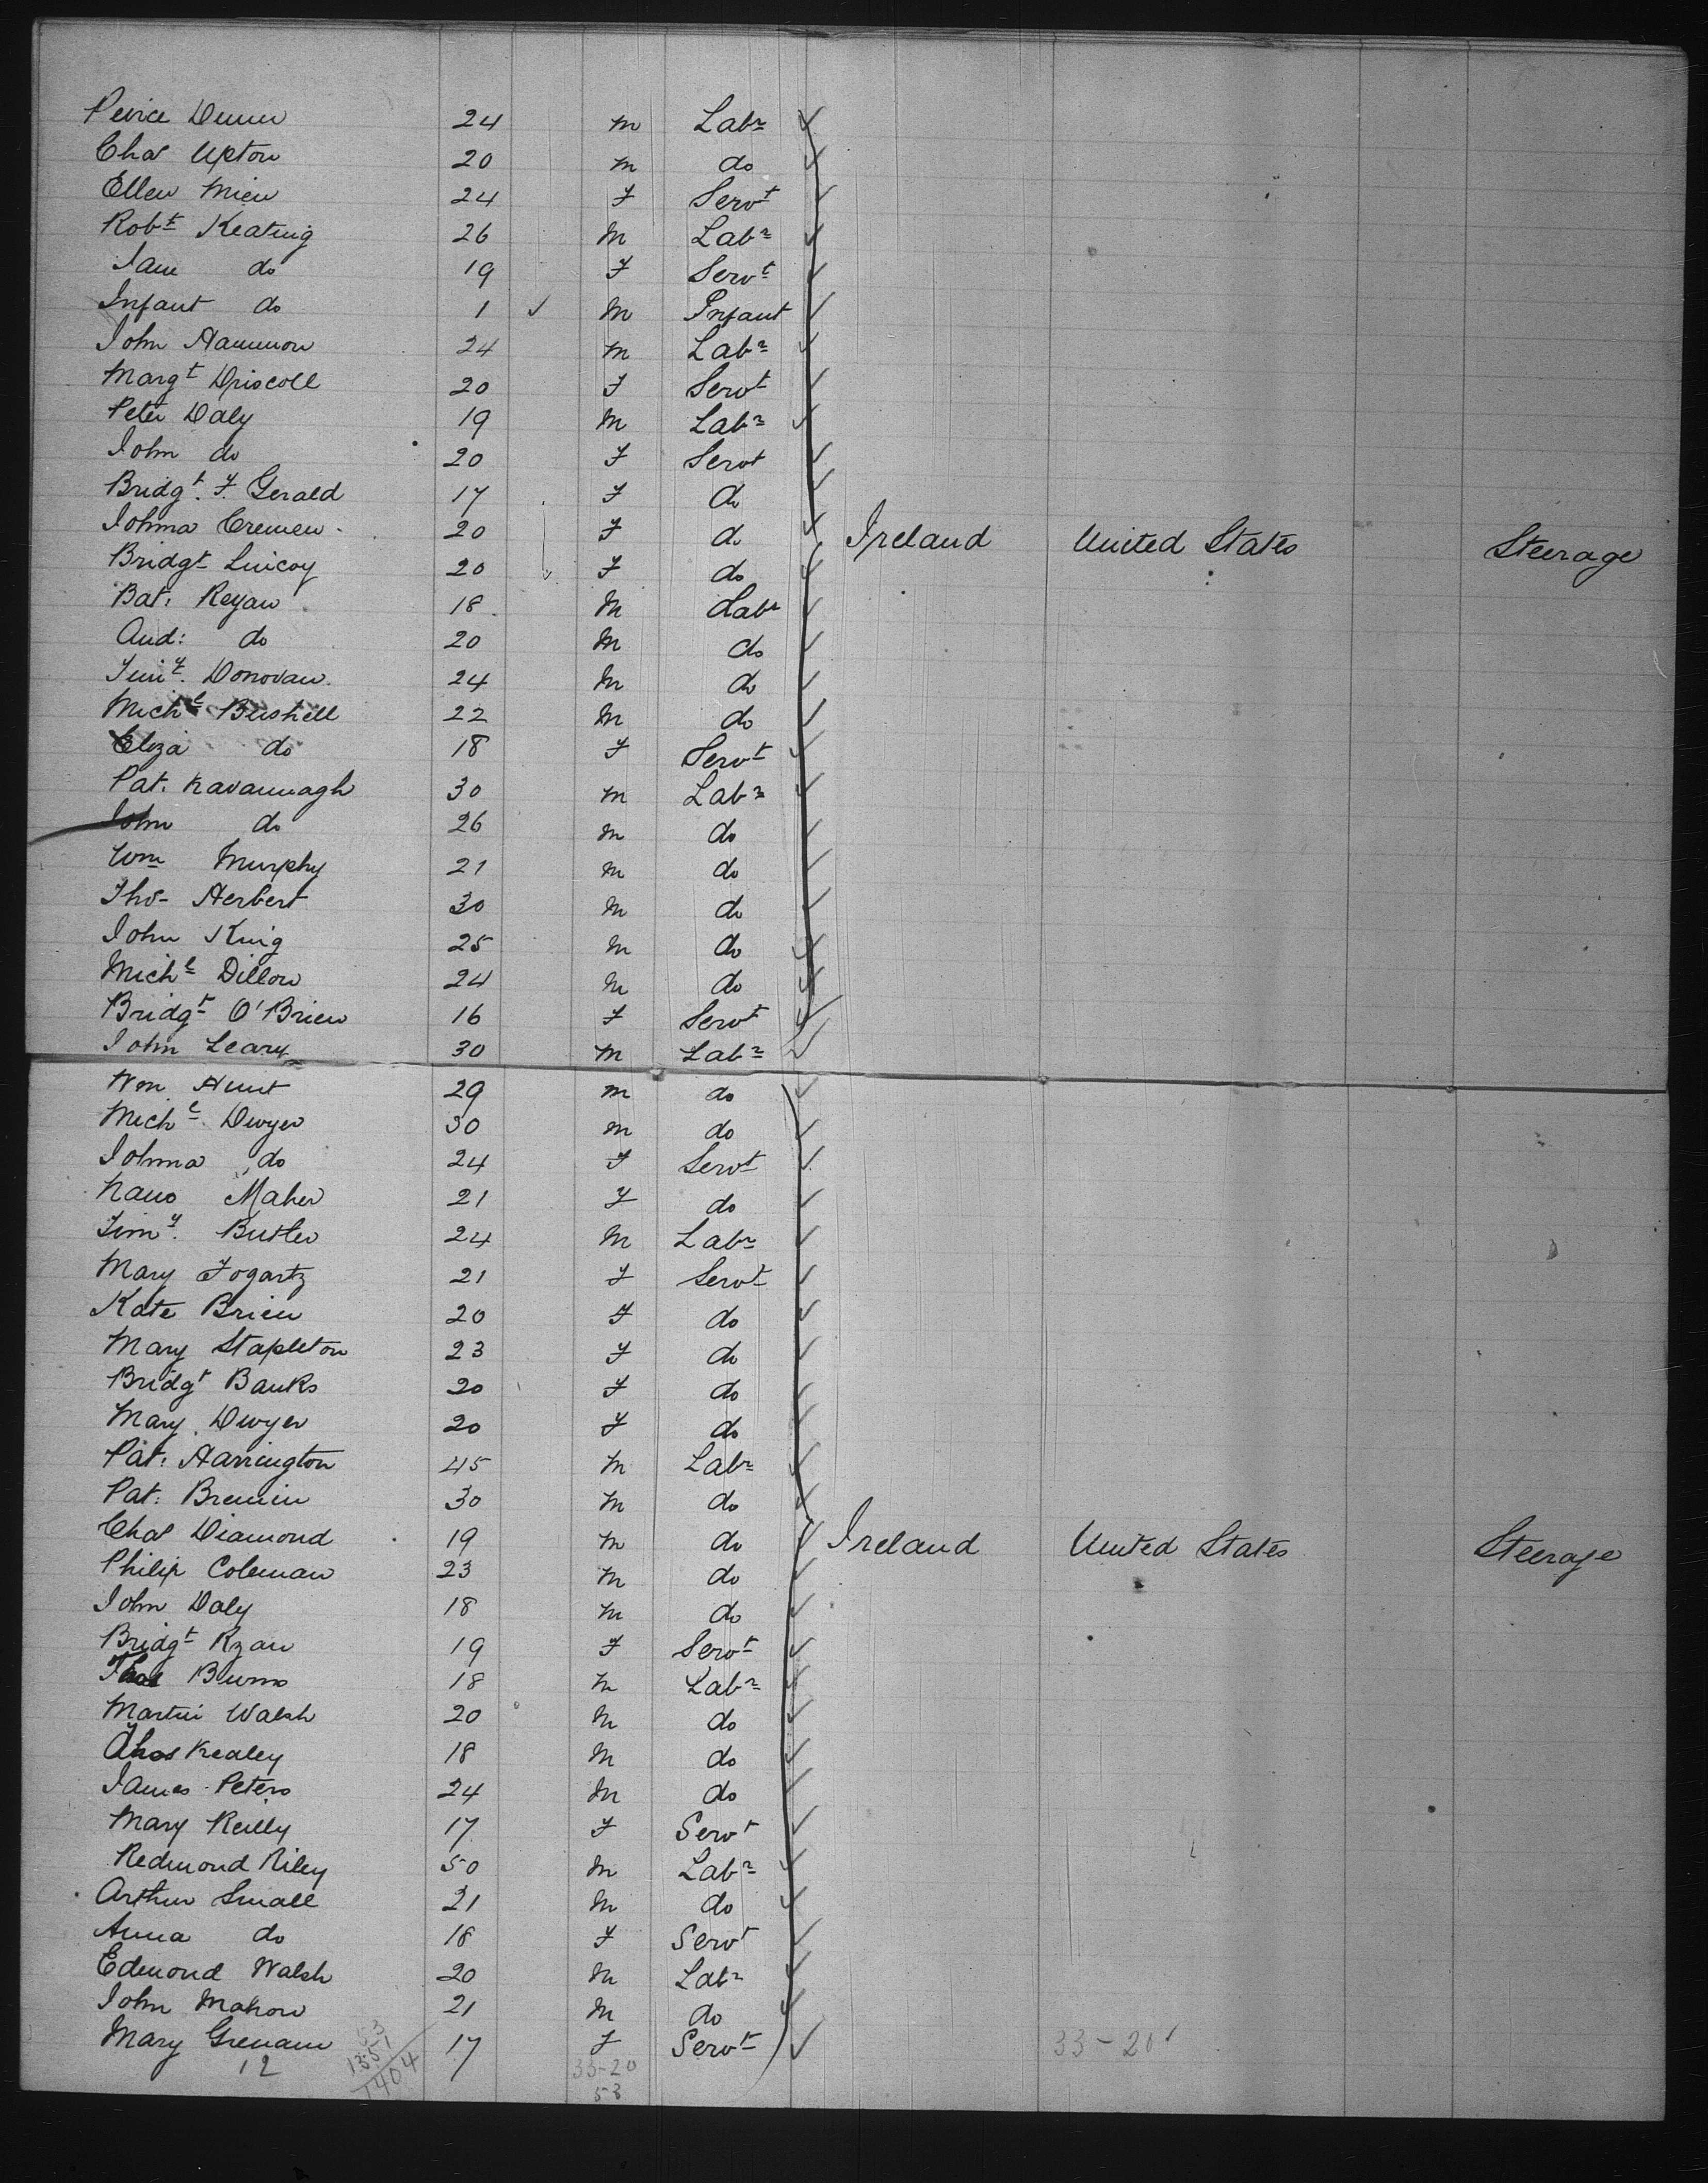 Peirce Dunn 24 m Labr
Chas Upton 20 m do
Ellen 24 F Servt
Robt Keating 26 M Labr
Jane do 19 F Servt
Infant do 1 M Infant
John Hammon 24 M Labr
Margt Driscoll 20 F Servt
Peter Daly 19 M Labr
John do 20 F Servt
Bridgt. F. Gerald 17 F do
Johna Cremen 20 F do Ireland United States Steerage
Bridgt 20 F do
Bat: Reyan 18 M Labr
And: do 20 M do
Timy. Donovan 24 M do
Michl Bushell 22 M do
Eliza do 18 F Servt
Pat. Kavannagh 30 M Labr
John do 26 M do
Wm Murphy 21 M do
Thos Herbert 30 M do
John King 25 M do
Michl Dillon 24 M do
Bridgt O'Brien 16 F Servt
John Leary 30 M Labr
Wm Hunt 29 M do
Michl Dwyer 30 M do
Johna do 24 F Servt
Nano Maher 21 F do
Timy. Butler 24 M Labr
Mary Fogarty 21 F Servt
Kate Brien 20 F do
Mary Stapleton 23 F do
Bridgt Banks 20 F do
Mary Dwyer 20 F do
Pat: Harrington 45 M Labr
Pat: 30 M do
Chas Diamond 19 M do Ireland United States Steerage
Philip Coleman 23 M do
John Daly 18 M do
Bridgt Ryan 19 F Servt
Thos Burns 18 M Labr
Martin Walsh 20 M do
Thos Kealey 18 M do
James Peters 24 M do
Mary Reilly 17 F Servt
Redmond Riley 50 M Labr
Arthur Small 21 M do
Anna do 18 F Servt
Edmond Walsh 20 M Labr
John Mahon 21 M do
Mary Grenam 17 F Servt 33-20
12 53 1351 1404 33-20
53